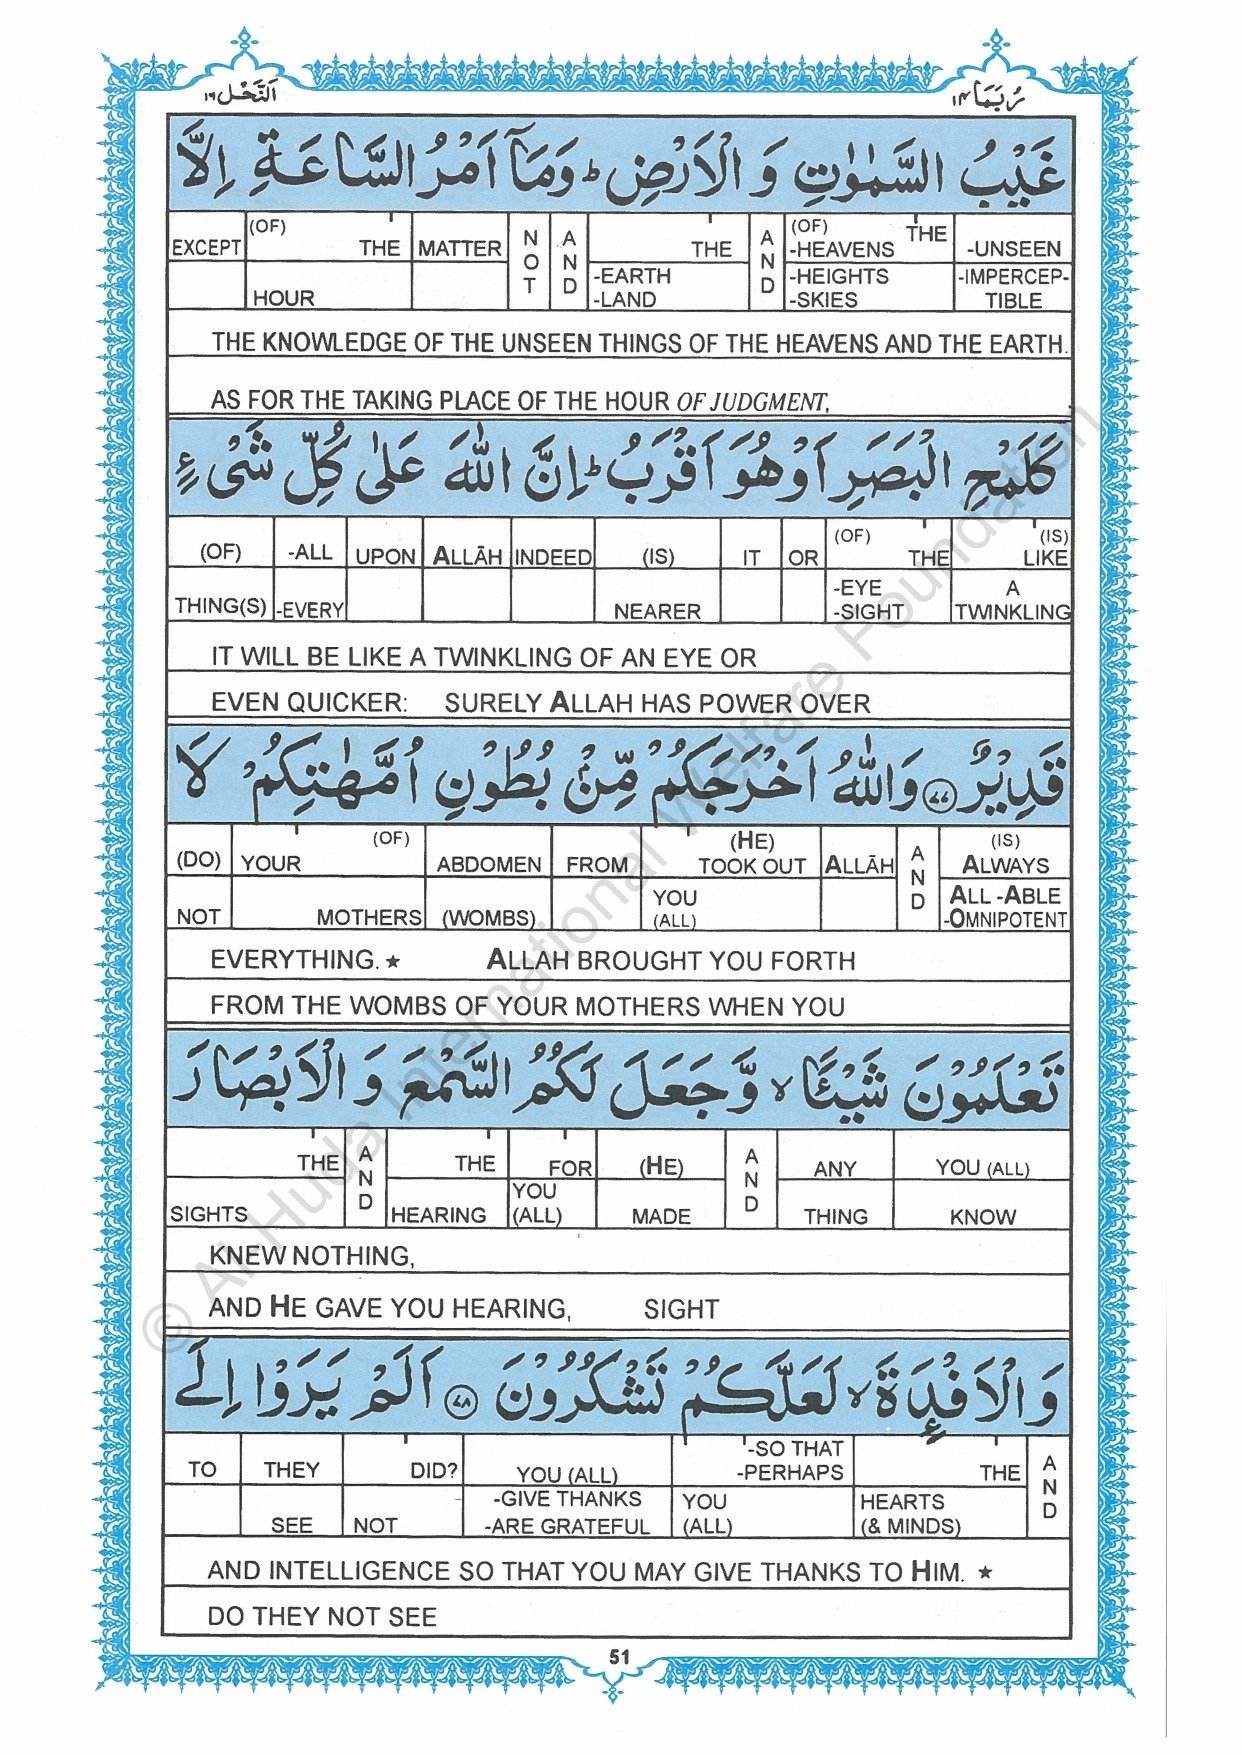 النَّحْل ١٦
رُبَمَا ١٤
غَيْبُ السَّمٰوٰتِ وَ الْاَرْضِ ؕ وَمَاۤ اَمْرُ السَّاعَةِ اِلَّا
EXCEPT (OF) THE MATTER NOT AND THE AND (OF) -HEAVENS THE -UNSEEN
HOUR -EARTH -LAND -HEIGHTS -SKIES -IMPERCEP-TIBLE
THE KNOWLEDGE OF THE UNSEEN THINGS OF THE HEAVENS AND THE EARTH.
AS FOR THE TAKING PLACE OF THE HOUR OF JUDGMENT,
كَلَمْحِ الْبَصَرِ اَوْ هُوَ اَقْرَبُ ؕ اِنَّ اللّٰهَ عَلٰى كُلِّ شَىْءٍ
(OF) -ALL UPON ALLĀH INDEED (IS) IT OR (OF) THE (IS) LIKE
THING(S) -EVERY NEARER -EYE -SIGHT A TWINKLING
IT WILL BE LIKE A TWINKLING OF AN EYE OR
EVEN QUICKER: SURELY ALLAH HAS POWER OVER
قَدِيْرٌ ٧٧ وَاللّٰهُ اَخْرَجَكُمْ مِّنْۢ بُطُوْنِ اُمَّهٰتِكُمْ لَا
(DO) YOUR (OF) ABDOMEN FROM (HE) TOOK OUT ALLĀH AND (IS) ALWAYS
NOT MOTHERS (WOMBS) YOU (ALL) ALL -ABLE -OMNIPOTENT
EVERYTHING. ★ ALLAH BROUGHT YOU FORTH
FROM THE WOMBS OF YOUR MOTHERS WHEN YOU
تَعْلَمُوْنَ شَيْـًٔا ۙ وَّ جَعَلَ لَكُمُ السَّمْعَ وَ الْاَبْصَارَ
THE AND THE FOR (HE) AND ANY YOU (ALL)
SIGHTS HEARING YOU (ALL) MADE THING KNOW
KNEW NOTHING,
AND HE GAVE YOU HEARING, SIGHT
وَ الْاَفْـِٕدَةَ ۙ لَعَلَّكُمْ تَشْكُرُوْنَ ٧٨ اَلَمْ يَرَوْا اِلَى
TO THEY DID? YOU (ALL) -SO THAT -PERHAPS THE AND
SEE NOT -GIVE THANKS -ARE GRATEFUL YOU (ALL) HEARTS (& MINDS)
AND INTELLIGENCE SO THAT YOU MAY GIVE THANKS TO HIM. ★
DO THEY NOT SEE
51
© Al-Huda International Welfare Foundation